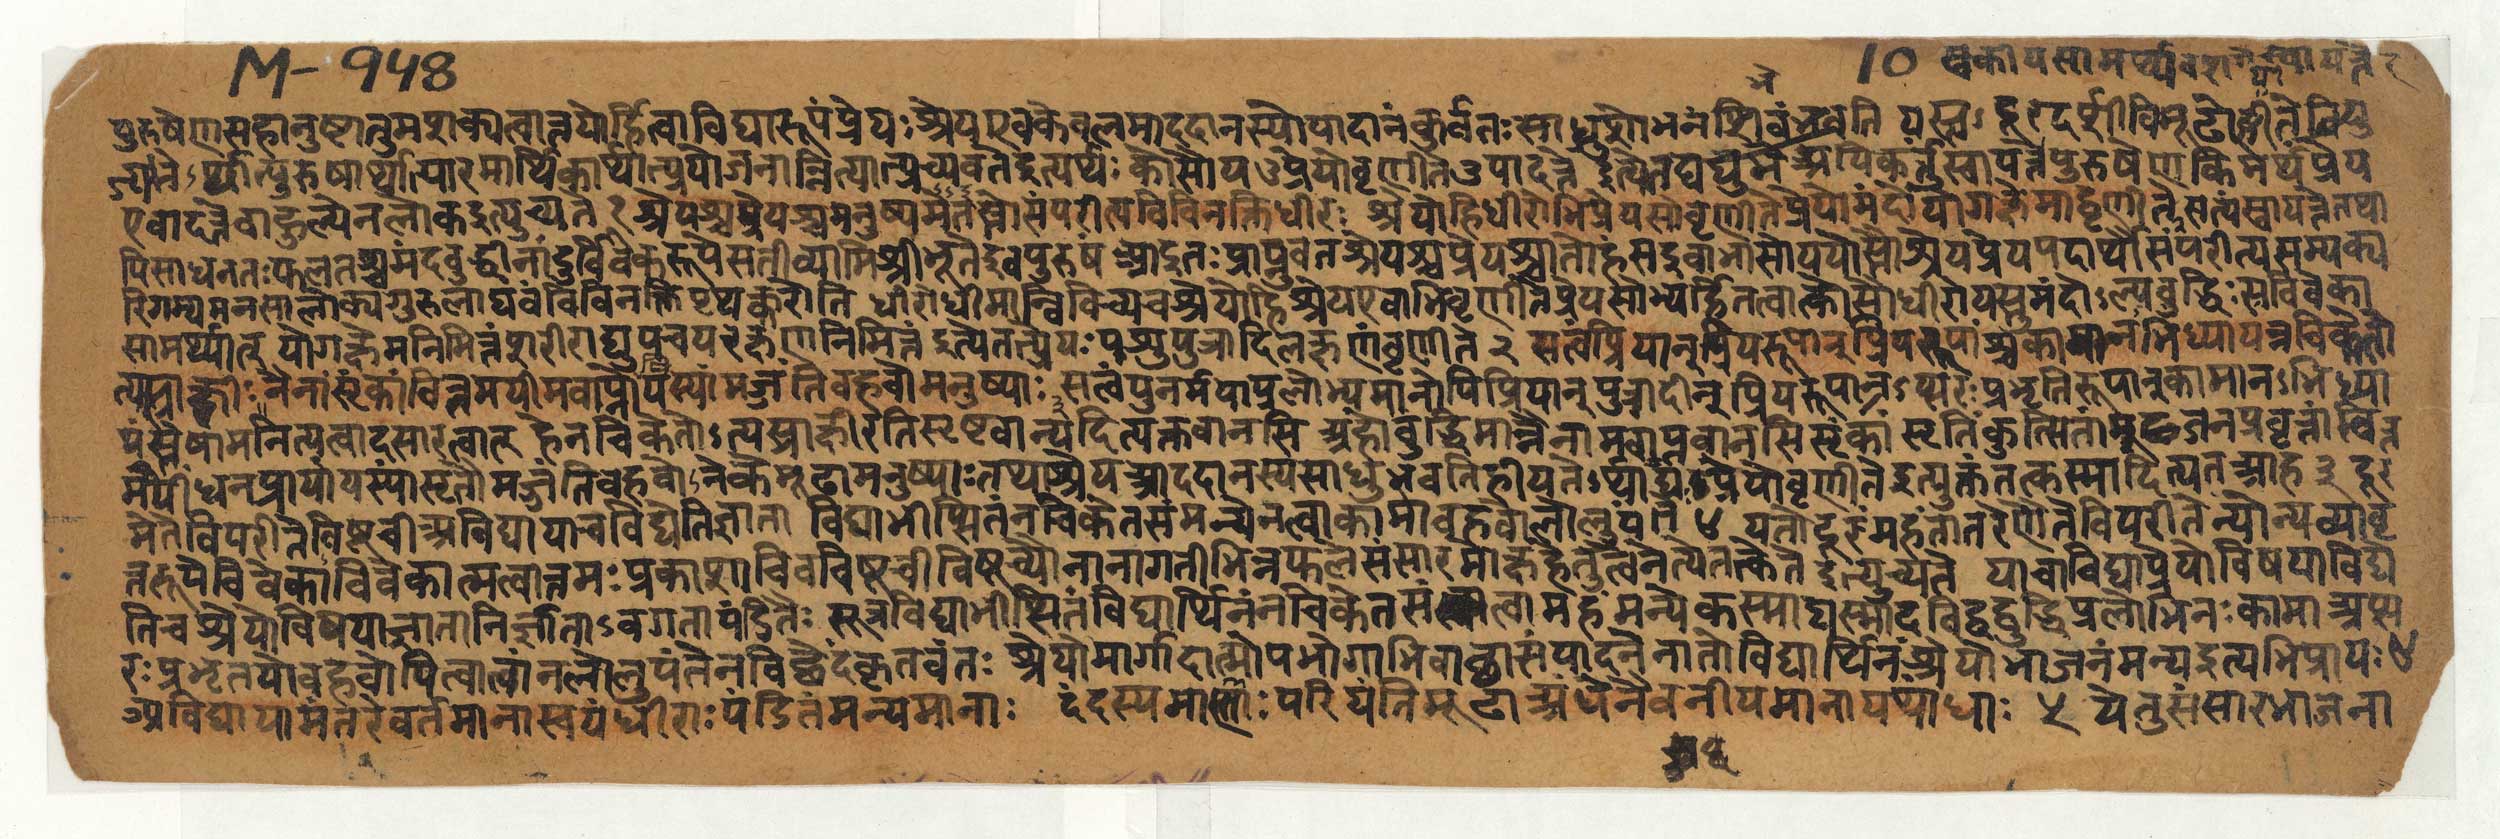 M- १५४
10 स्वकीयसामर्थ्यवशा
पुरुषेणसहानुष्टातुमशक्यत्वात्तयोर्हित्वाविद्यारूपंप्रेयः श्रेयएवकेवलमाददानस्योपादानंकुर्वतः साधुशोभनंशिवंभवति यस्त्व ऽदूरदर्शीविमूढोहीयतेवियु
ज्यते ऽर्थात्पुरुषार्थात्पारमार्थिकार्थात्प्रयोजनान्नित्यात्प्रच्यवतइत्यर्थः कोसौयउप्रेयोवृणीतेउपादत्ते इत्येतद्यद्युभेअपिकर्तुंस्वायत्तेपुरुषेणकिमर्थंप्रेय
एवादत्तेवाहुल्येनलोकइत्युच्यते १ श्रेयश्चप्रेयश्चमनुष्यमेतस्तौसंपरीत्यविविनक्तिधीरः श्रेयोहिधीरोभिप्रेयसोवृणीतेप्रेयोमंदोयोगक्षेमाद्वृणीते सत्यंस्वायत्तेतथा
पिसाधनतः फलतश्चमंदवुद्धीनांदुर्विवेकरूपेसतीव्यामिश्रीभूतेइवपुरुष माइतः प्राप्नुवतश्रेयश्चप्रेयश्चातोहंसइवांभसोपयोस्तौश्रेयप्रेयपदार्थौसंपरीत्यसम्यक्प
रिगम्यमनसालोक्यगुरुलाघवंविविनक्तिपृथक्करोति धीरोधीमान्विविच्यचश्रेयोहिश्रेयएवाभिवृणीतेप्रेयसोभ्यर्हितत्वात्कोसौधीरोयस्तुमंदोऽल्पवुद्धिः सविवेका
सामर्थ्यात् योगक्षेमनिमित्तंशरीराद्युपचयरक्षणनिमित्तं इत्येतत्प्रेयः पशुपुत्रादिलक्षणंवृणीते २ सत्वंप्रियान्प्रियरूपान्प्रियरूपांश्चकामानभिध्यायन्नचिकेतो
त्यस्राक्षीः नैनांसृंकांवित्तमयीमवाप्तोयस्यांमज्जंतिवहवोमनुष्याः सत्वंपुनर्मयाप्रलोभ्यमानोपिप्रियान्पुत्रादीन्प्रियरूपान् ऽप्सरः प्रभृतिरूपान्कामानऽभिध्या
यंस्तेषामनित्यत्वादसारत्वात् हेनचिकेतोऽत्यस्राक्षीरतिसृष्टवान्यदित्यक्तवानसि अहोवुद्धिमान्नैनामवाप्तवानसिसृंकां सृतिंकुत्सितांमूढजनप्रवृत्तांवित्त
मैयींधनप्रायांयस्यांसृतौमज्जंतिवहवोऽनेकेमूढामनुष्याः तथाश्रेयआददानस्यसाधुभवतिहीयतेऽर्थाद्यउप्रेयोवृणीतेइत्युक्तंतत्कस्मादित्यतआह ३ दूर
मेतेविपरीतेविषूचीअविद्यायाचविद्येतिज्ञाता विद्याभीप्सितंनचिकेतसंमन्येनत्वाकामावहवोलोलुपंत ४ यतोदूरंमहंतांतरेणेतेविपरीतेन्योन्यव्यावृ
तरूपेविवेकाविवेकात्मत्वात्तमः प्रकाशाविवविषूचीविषूच्यौनानागतीभिन्नफलेसंसारमोक्षहेतुत्वेनेत्येतत्केते इत्युच्यते याचाविद्याप्रेयोविषयाविद्ये
तिचश्रेयोविषयाज्ञातानिर्ज्ञाताऽवगतापंडितैः सूत्रविद्याभीप्सितंविद्यार्थिनंनचिकेतसंत्वामहंमन्येकस्माद्यस्मादविद्वद्वुद्धिप्रलोभिनः कामाअप्स
रः प्रभृतयोवहवोपित्वात्वांनलोलुपंतेनविछेदंकृतवंतः श्रेयोमार्गादात्मोपभोगाभिवांछासंपादनेनातोविद्यार्थिनंश्रेयोभाजनंमन्यइत्यभिप्रायः ४
अविद्यायामंतरेवर्तमानास्वयंधीराः पंडितंमन्यमानाः दंदस्यमाणाः परियंतिमूढाअंधेनैवनीयमानायथांधाः ५ येतुसंसारभाजना